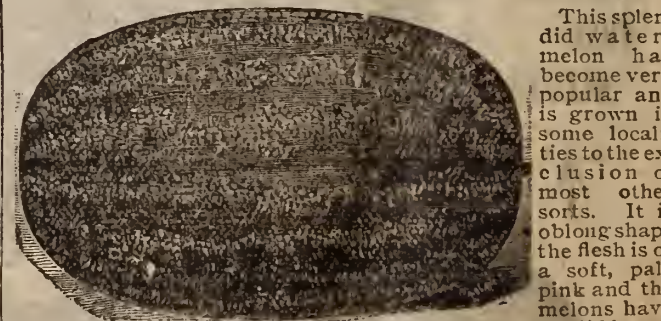 This splen
did water
melon ha
become ver
popular an
is grown i
some locali
ties to the ex
clusion o
most othe
sorts. It i
oblong shap
the flesh is o
a soft, pal
pink and th
melons hav